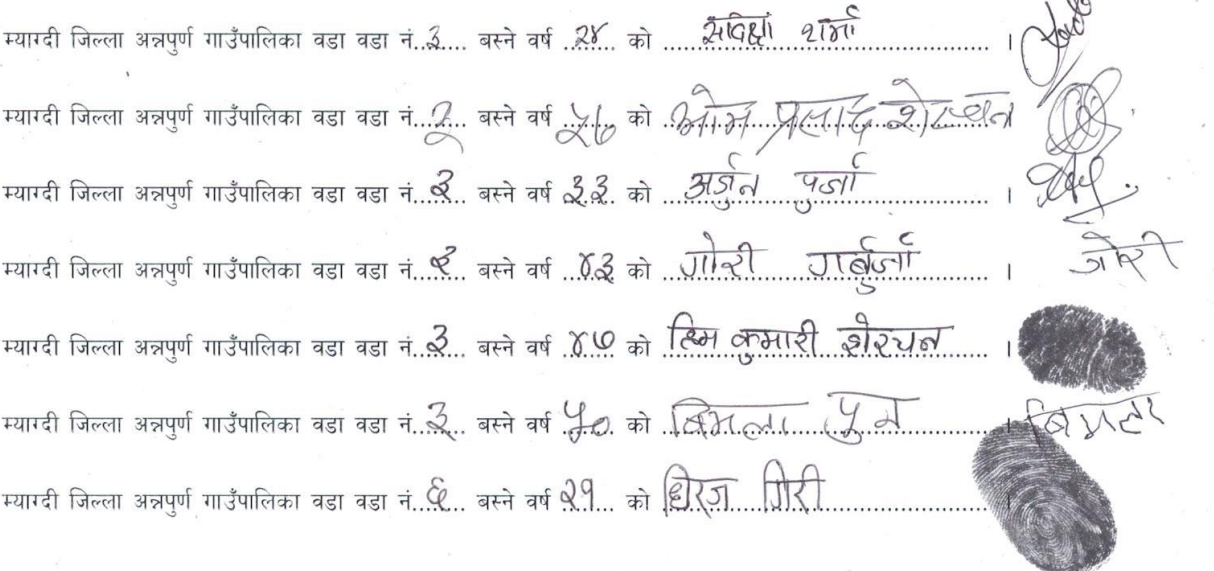 म्याग्दी जिल्ला अन्नपुर्ण गाउँपालिका वडा वडा नं..३.... बस्ने वर्ष ..२४... को ....संदिक्षा शर्मा.... ।
म्याग्दी जिल्ला अन्नपुर्ण गाउँपालिका वडा वडा नं..३.... बस्ने वर्ष ..५७... को ओम प्रसाद शेरचन
म्याग्दी जिल्ला अन्नपुर्ण गाउँपालिका वडा वडा नं..३.... बस्ने वर्ष ३३ को अर्जुन पुर्जा ।
म्याग्दी जिल्ला अन्नपुर्ण गाउँपालिका वडा वडा नं..३.... बस्ने वर्ष ..४३... को गोरी गर्बुजा । गोरी
म्याग्दी जिल्ला अन्नपुर्ण गाउँपालिका वडा वडा नं..३.... बस्ने वर्ष ४७ को कुमारी शेरचन ।
म्याग्दी जिल्ला अन्नपुर्ण गाउँपालिका वडा वडा नं..३.... बस्ने वर्ष ५० को बिमला पुन । बिमला
म्याग्दी जिल्ला अन्नपुर्ण गाउँपालिका वडा वडा नं..६.... बस्ने वर्ष २१ को धिरज गिरी ।